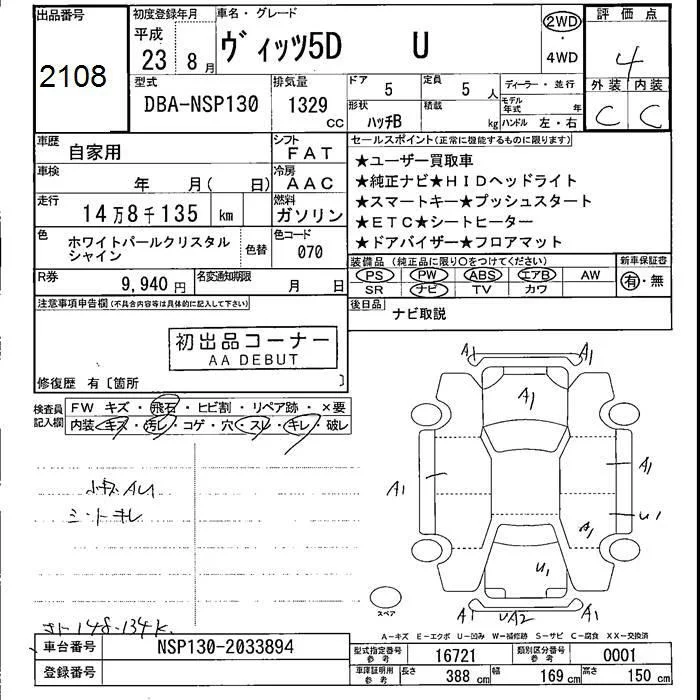 出品番号
2108
初度登録年月
平成
23年 8月
車名・グレード
ヴィッツ5D U
2WD
・
4WD
評価点
4
外装 内装
C C
型式
DBA-NSP130
排気量
1329 CC
ドア 5
定員 5 人
形状 ハッチB
積載 kg
ディーラー・並行
モデル年式 年
ハンドル 左・右
車歴 自家用
シフト FAT
車検 年 月( 日)
冷房 AAC
走行 14万8千135 km
燃料 ガソリン
色 ホワイトパールクリスタル
シャイン
色替
色コード 070
R券 9,940円
名変通知期限 月 日
セールスポイント(正常に機能するものに限ります)
★ユーザー買取車
★純正ナビ★HIDヘッドライト
★スマートキー★プッシュスタート
★ETC★シートヒーター
★ドアバイザー★フロアマット
装備品 (純正品に限り○をつけてください)
新車保証書
PS PW ABS エアB AW
SR ナビ TV カワ
有・無
後日品 ナビ取説
注意事項申告欄(不具合内容等は具体的に記入して下さい)
初出品コーナー
AA DEBUT
修復歴 有〔箇所 〕
検査員
記入欄
FW キズ・飛石・ヒビ割・リペア跡・×要
内装 キズ・汚レ・コゲ・穴・スレ・キレ・破レ
小キズAU
シートキレ
148-134K
A1 A1
A1
A1 A1
U1
A1
U1
A1 UA2 A1
スペア
A-キズ E-エクボ U-凹み W-補修跡 S-サビ C-腐食 XX-交換済
車台番号 NSP130-2033894
登録番号
型式指定番号 参考 16721
類別区分番号 参考 0001
車庫証明用 参考 長さ 388 cm 幅 169 cm 高さ 150 cm